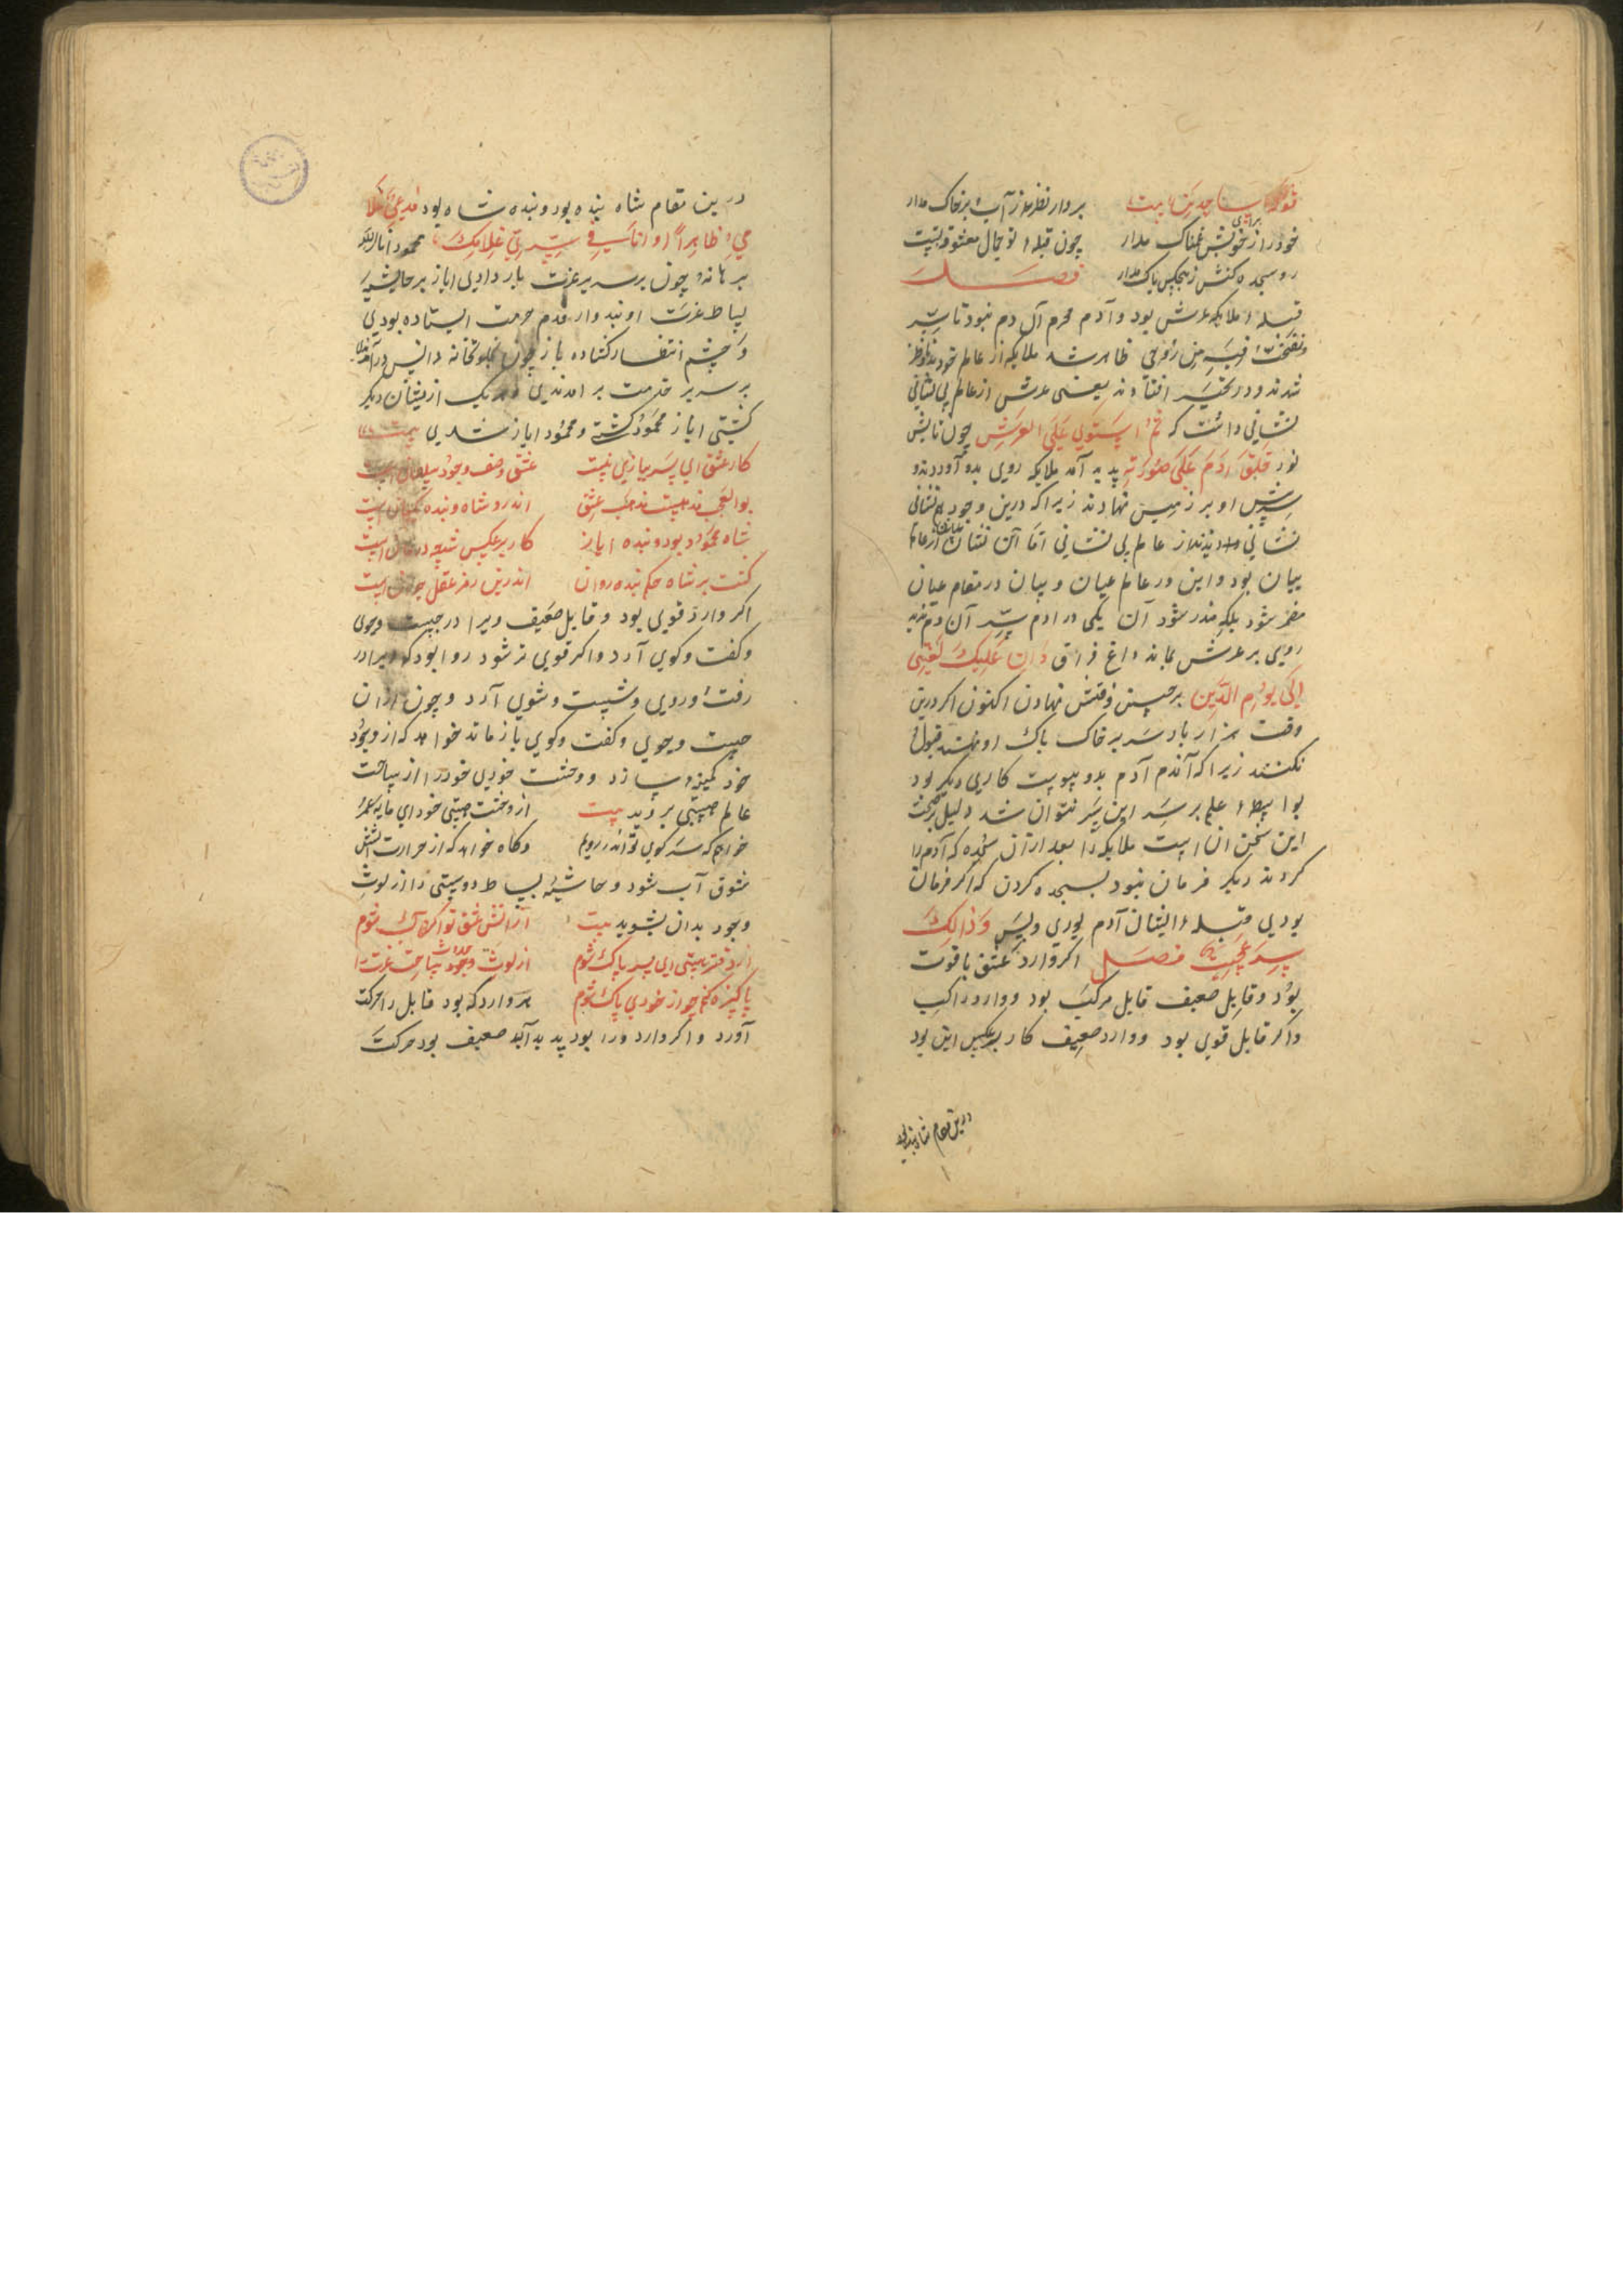 فوقع ساجدین بیت بردار نظر ز آب و بر خاک مدار
خود را ز برای خویش غمناک مدار چون قبلهٔ تو جمال معشوقه تست
رو سجده کنش ز هیچکس باک مدار فصل
قبلهٔ ملایکه عرش بود و آدم محرم آن دم نبود تا سر
ونفخت فیه من روحی ظاهر شد ملایکه از عالم خود
شدند و در تحیر افتادند یعنی عرش از عالم بی نشانی
نشانی داشت که ثم استوی علی العرش چون تابش
نور خلق آدم علی صورته پدید آمد ملایکه روی بدو آوردند و
سر پیش او بر زمین نهادند زیرا که درین وجود هم نشانی
نشانی دیدند از عالم بی نشانی اما آن نشان از عالم
بیان بود و این در عالم عیان و بیان در مقام عیان
مضمر شود بلکه مندر شود آن یکی در آدم سر آن دم بدید
روی بر عرش بماند داغ فراق وان علیک لعنتی
الی یوم الدین بر جبین وقتش نهادن اکنون اگر درین
وقت هزار بار سر بر خاک پاک او نهند قبول
نکنند زیرا که آندم آدم بدو پیوست کاری دیگر بود
بواسطهٔ علم بر سر این سر نتوان شد دلیل صحت
این سخن آن است ملایکه را بعد از آن سجده که آدم را
کردند دیگر فرمان نبود بسجده کردن که اگر فرمان
بودی قبلهٔ ایشان آدم بودی ولیس وذالک
سر عجیب فصل اگر وارد عشق با قوت
بود و قابل ضعیف قابل مرکب بود و وارد راکب
و اگر قابل قوی بود و وارد ضعیف کار بر عکس این بود
درین مقام شاه بنده بود
درین مقام شاه بنده بود و بنده شاه بود
ظاهرا و انا فی سر سر غلامک محمود انار الله
برهانه چون بر سریر عزت بار دادی ایاز بر حاشیهٔ
بساط عزت او بنده وار بقدم حرمت ایستاده بودی
و چشم انتظار گشاده باز چون بخلوتخانه انس در آمدندی
بر سریر خدمت بر آمدندی و هر یک از ایشان دیگر
گشتی ایاز محمود گشته و محمود ایاز شدی بیت
کار عشق ای پسر ببازی نیست عشق وصف وجود سلطان است
بوالعجب مذهبیست مذهب عشق اندرو شاه و بنده یکسان است
شاه محمود بود و بنده ایاز کار بر عکس شد چه درمان است
گشت بر شاه حکم بنده روان اندرین رمز عقل حیران است
اگر وارد قوی بود و قابل ضعیف ویرا در جست و جوی
و گفت و گوی آرد و اگر قوی تر شود روا بود که ویرا در
رفت و روی و شست و شوی آرد و چون از آن
جست و جوی و گفت و گوی باز ماند خواهد که از وجود
خود گریزد و سازد و وحشت خودی خود را از ساحت
عالم هستی بروبد بیت از وحشت هستی خود ای مایهٔ عمر
خواهم که سر کوی تو اندر روبم و گاه خواهد که از حرارت آتش
شوق آب شود و حاشیهٔ بساط دوستی را از لوث
وجود بدان بشوید بیت از آتش عشق تو اگر آب شوم
از دفتر هستی ای پسر پاک شوم از لوث وجود ساحت عزت را
پاکیزه کنم چو از خودی پاک شوم هر وارد که بود قابل را حرکت
آورد و اگر وارد ورا بود پدید آید ضعیف بود حرکت